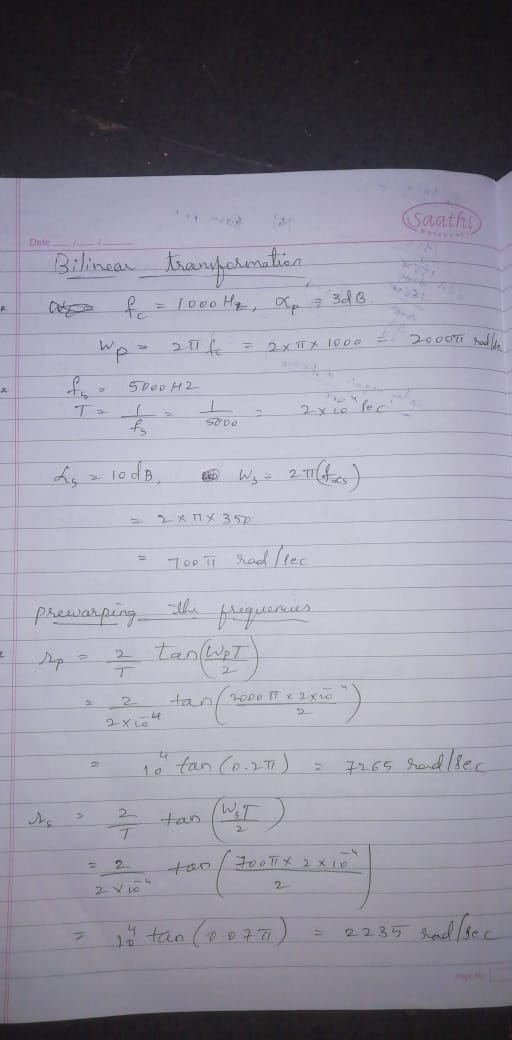 Saathi
Date __/__/__
Bilinear transformation
f_c = 1000 Hz, α_p = 3dB
W_p = 2π f_c = 2×π×1000 = 2000π rad/sec
f_s = 5000 HZ
T = 1/f_s = 1/5000 = 2×10⁻⁴ Sec
α_s = 10dB, W_s = 2π(f_xs)
= 2×π×350
= 700π rad/sec
prewarping the frequencies
Ω_p = 2/T tan(W_pT/2)
= 2/2×10⁻⁴ tan(2000π×2×10⁻⁴/2)
= 10⁴ tan(0.2π) = 7265 rad/sec
Ω_s = 2/T tan(W_sT/2)
= 2/2×10⁻⁴ tan(700π×2×10⁻⁴/2)
= 10⁴ tan(0.07π) = 2235 rad/sec
Page No.